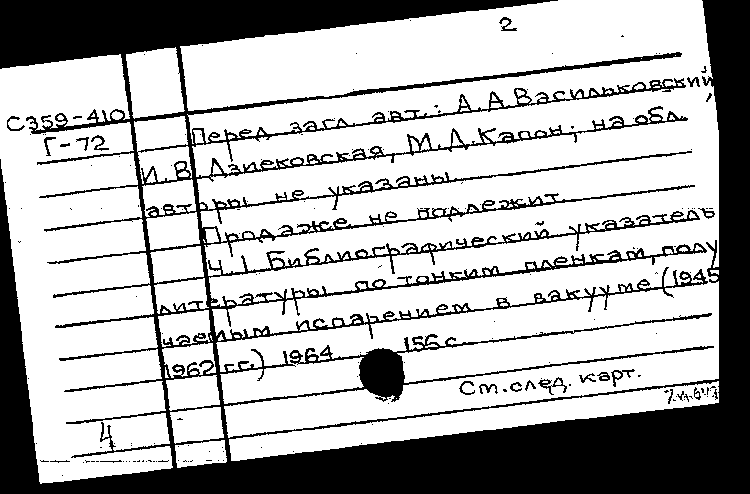 2
С359-410
Г-72
Перед загл. авт.: А.А Васильковский,
И.В. Дзиековская, М.Д. Капон; на обл.
авторы не указаны.
Продаже не подлежит.
Ч.1 Библиографический указатель
литературы по тонким пленкам, полу
чаемым испарением в вакууме (1945
1962 гг.) 1964 156 с.
См. след. карт.
4